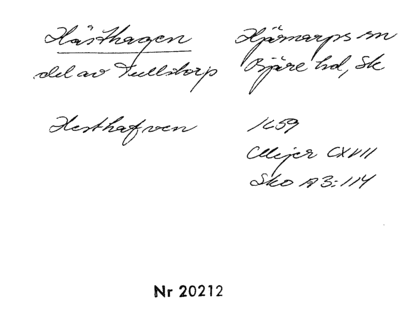 Hästhagen
del av Tullstorp
Hjärnarps sn
Bjäre hd, Sk
Hesthafven
1659
Meijer CXVII
Sko A3:114
Nr 20212